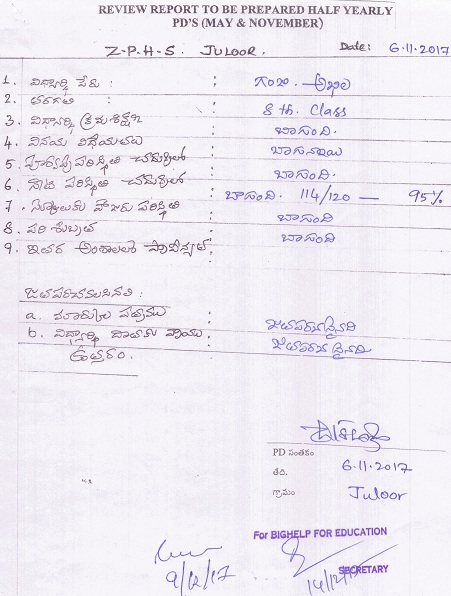 REVIEW REPORT TO BE PREPARED HALF YEARLY
PD'S (MAY & NOVEMBER)
Z.P.H.S. JULOOR. Date: 6.11.2017
1. విద్యార్థి పేరు : : గంజి. అఖిల
2. తరగతి : 8 th. Class
3. విద్యార్థి క్రమశిక్షణ : బాగుంది.
4. వినయ విధేయతలు : బాగున్నాయి
5. పూర్వపు పరిస్థితి చదువులో : బాగుంది.
6. నేటి పరిస్థితి చదువులో : బాగుంది. 114/120 — 95%
7. స్కూలుకు హాజరు పరిస్థితి : బాగుంది
8. పరిశుభ్రత : బాగుంది
9. ఇతర అంశాలలో ప్రావీణ్యత :
జతపరచవలసినవి :
a. మార్కుల పత్రము : జతపరచనైనది
b. విద్యార్థి దాతకు వ్రాయు : జతపరచనైనది
ఉత్తరం.
PD సంతకం
తేది. 6.11.2017
గ్రామం Juloor
For BIGHELP FOR EDUCATION
9/12/17
SECRETARY